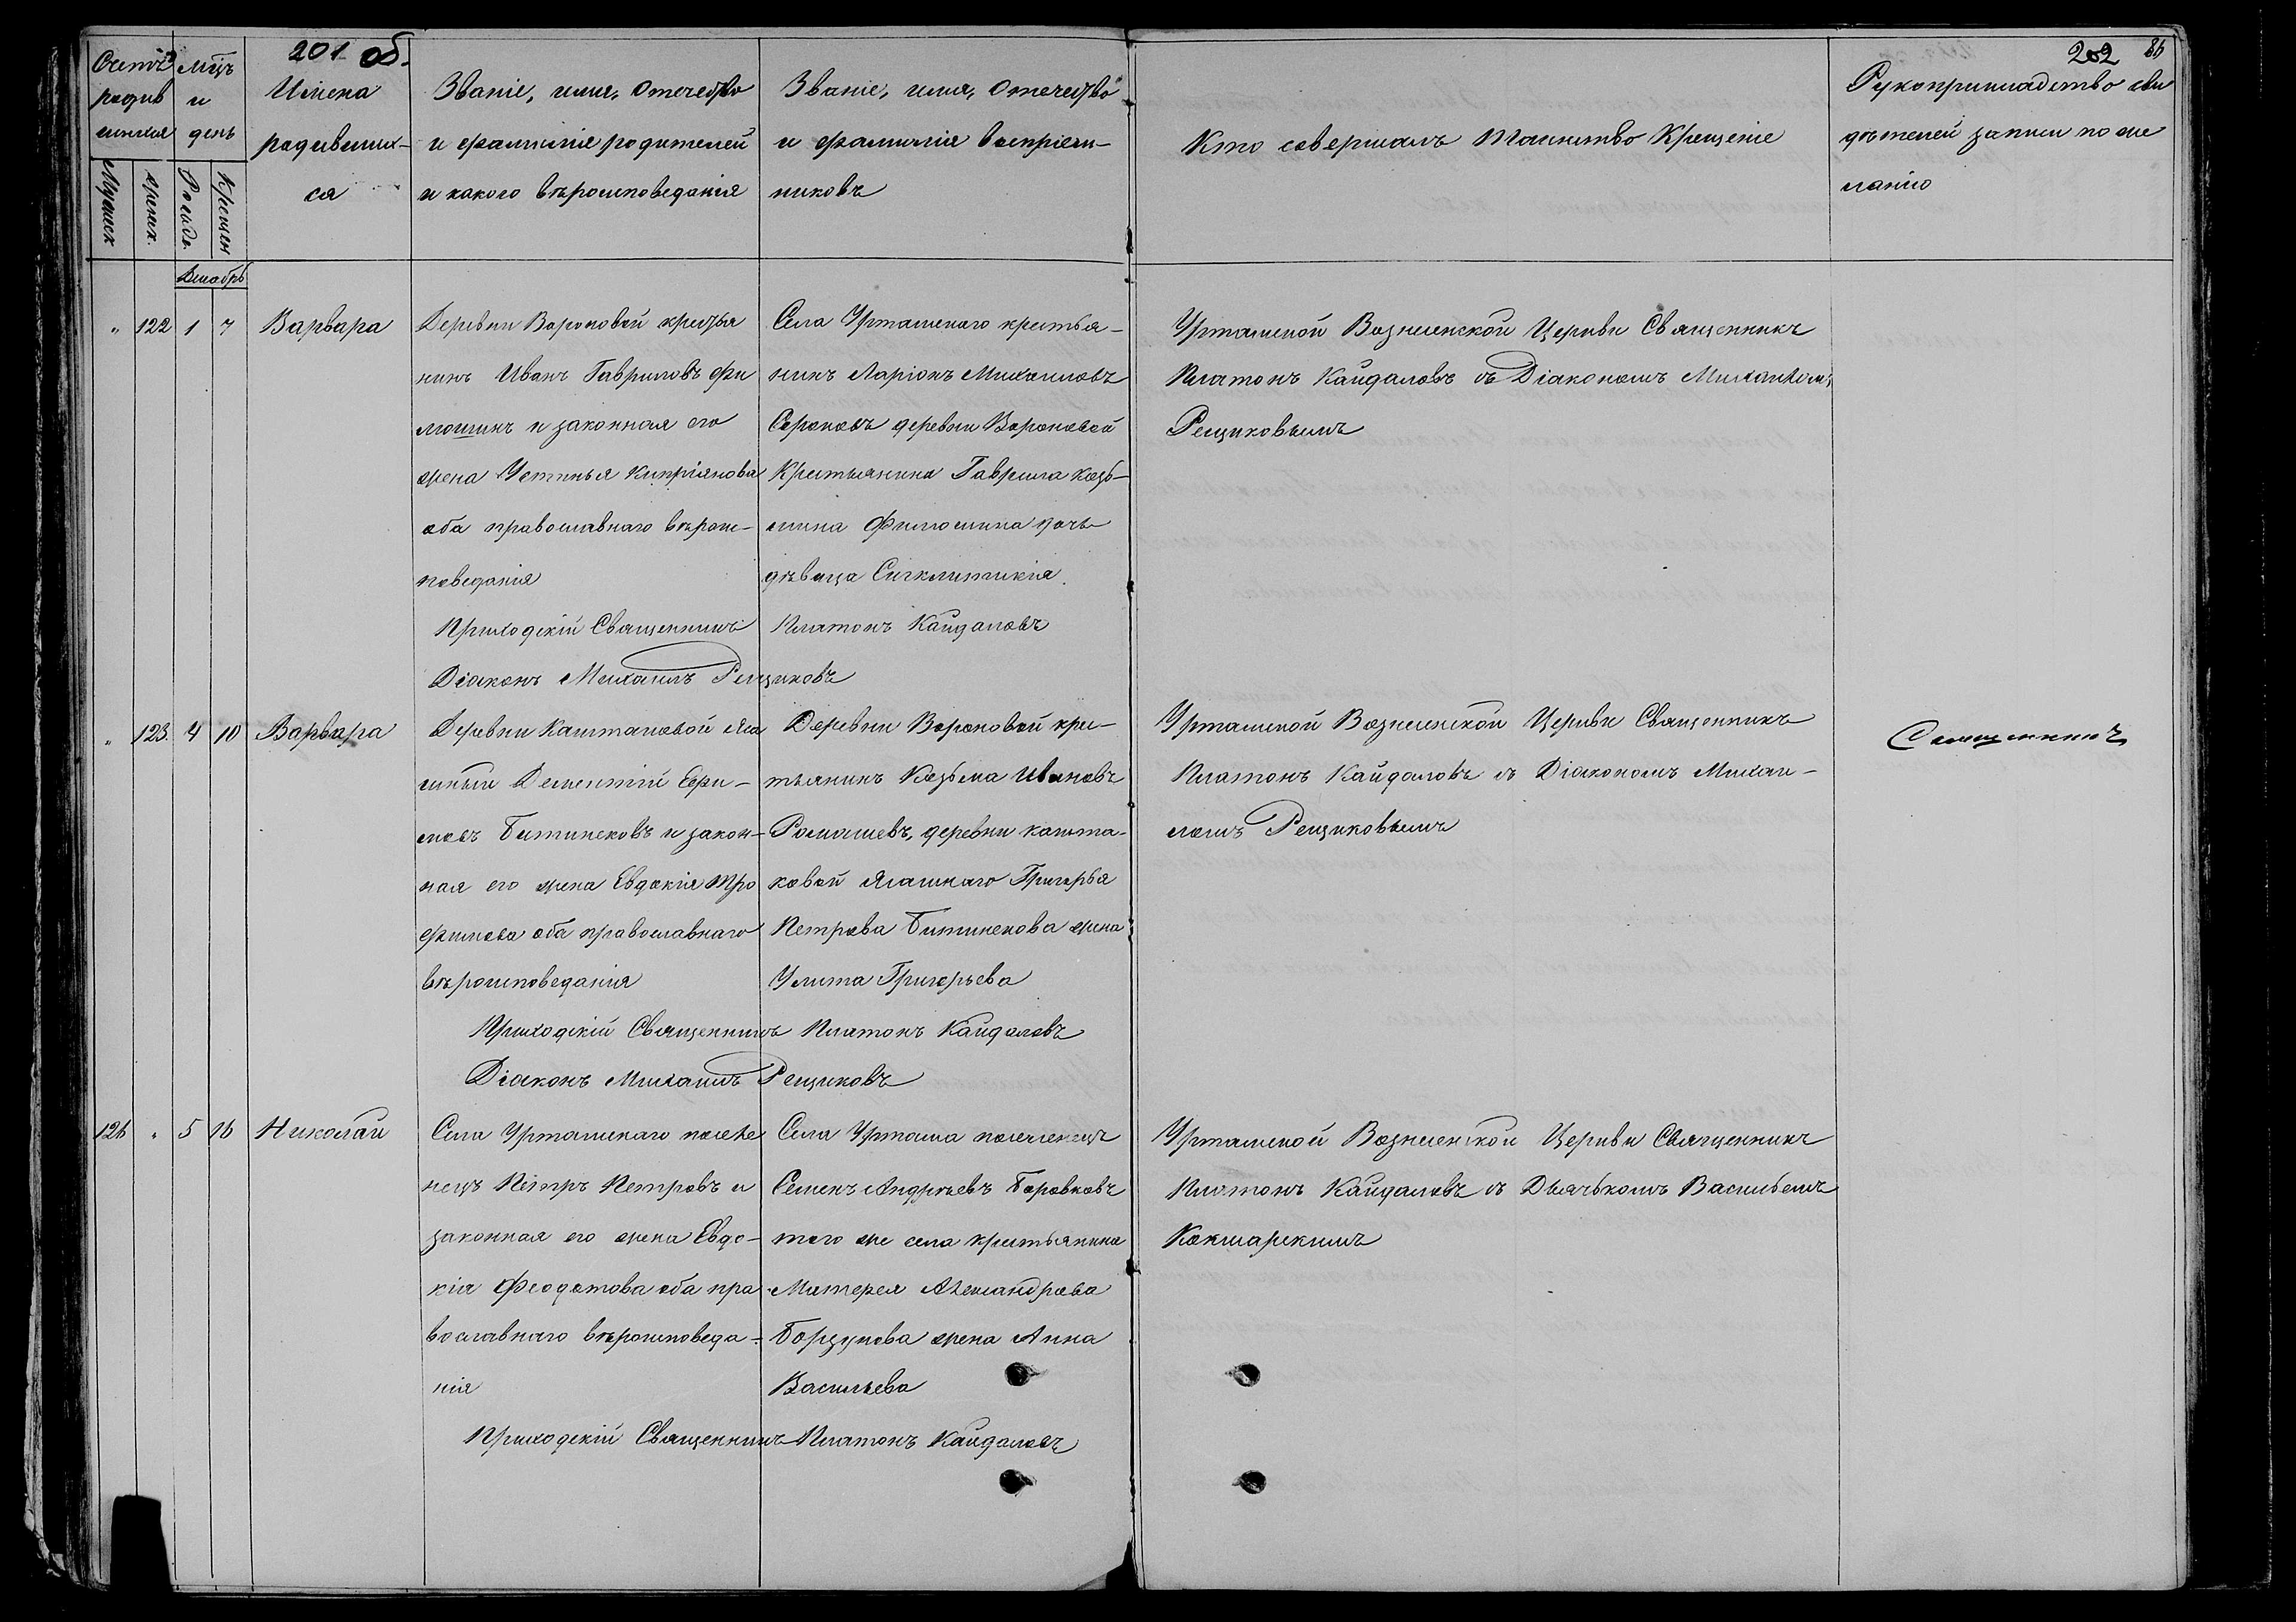 201 об.
202 86
Счетъ родив шихся
Мужеск
Женск.
Мцъ и день
Рожде.
Крещен
Имена родивших- ся
Званіе, имя, Отечество и фамиліе родителей и какого вѣроисповеданія
Званіе, имя, Отечество и фамилія воспріем- никовъ
Кто совершалъ Таинство Крещеніе
Рукоприкладство сви дѣтелей записи по же ланію
Декабрь
" 122 1 7 Варвара
Деревни Вороновой крестья
нинъ Иванъ Гавриловъ Фи
мошинъ и законная его
жена Устинья Кипріянова
оба православнаго вѣроис-
поведанія
Села Урташскаго крестья-
нинъ Ларіонъ Михаиловъ
деревни Вороновой
Крестьянина Гаврила Козь-
мина дочь
дѣвица Сигклитикія.
Уртамской Вознесенской Церкви Священникъ
Платонъ Кайдаловъ съ Діакономъ Михаиломъ
Рещиковымъ
Приходскій Священникъ Платонъ Кайдаловъ
Діаконъ Михаилъ Рещиковъ
" 123 4 10 Варвара
Деревни Каштаковой Яса
шный Дементій Ефи-
мовъ Битинековъ и закон-
ная его жена Евдокія Тро
фимова оба православнаго
вѣроисповеданія
Деревни Вороновой крес-
тьянинъ Козьма Ивановъ
Ромашевъ, деревни Кашта-
ковой Ясашнаго Григорья
Петрова Битинекова жена
Улита Григорьева
Уртамской Вознесенской Церкви Священникъ
Платонъ Кайдаловъ съ Діакономъ Михаи-
ломъ Рещиковымъ
Священникъ
Приходскій Священникъ Платонъ Кайдаловъ
Діаконъ Михаилъ Рещиковъ
126 " 5 16 Николай
Села Уртамскаго поселе
нецъ Петръ Петровъ и
законная его жена Евдо-
кія Феодотова оба пра
вославнаго вѣроисповеда-
нія
Села Уртама поселенецъ
Семенъ Андреевъ Боровковъ
того же села крестьянина
Александрова
Борзунова жена Анна
Васильева
Уртамской Вознесенской Церкви Священникъ
Платонъ Кайдаловъ съ Дьячькомъ Васильемъ
Кокшарскимъ
Приходскій Священникъ Платонъ Кайдаловъ